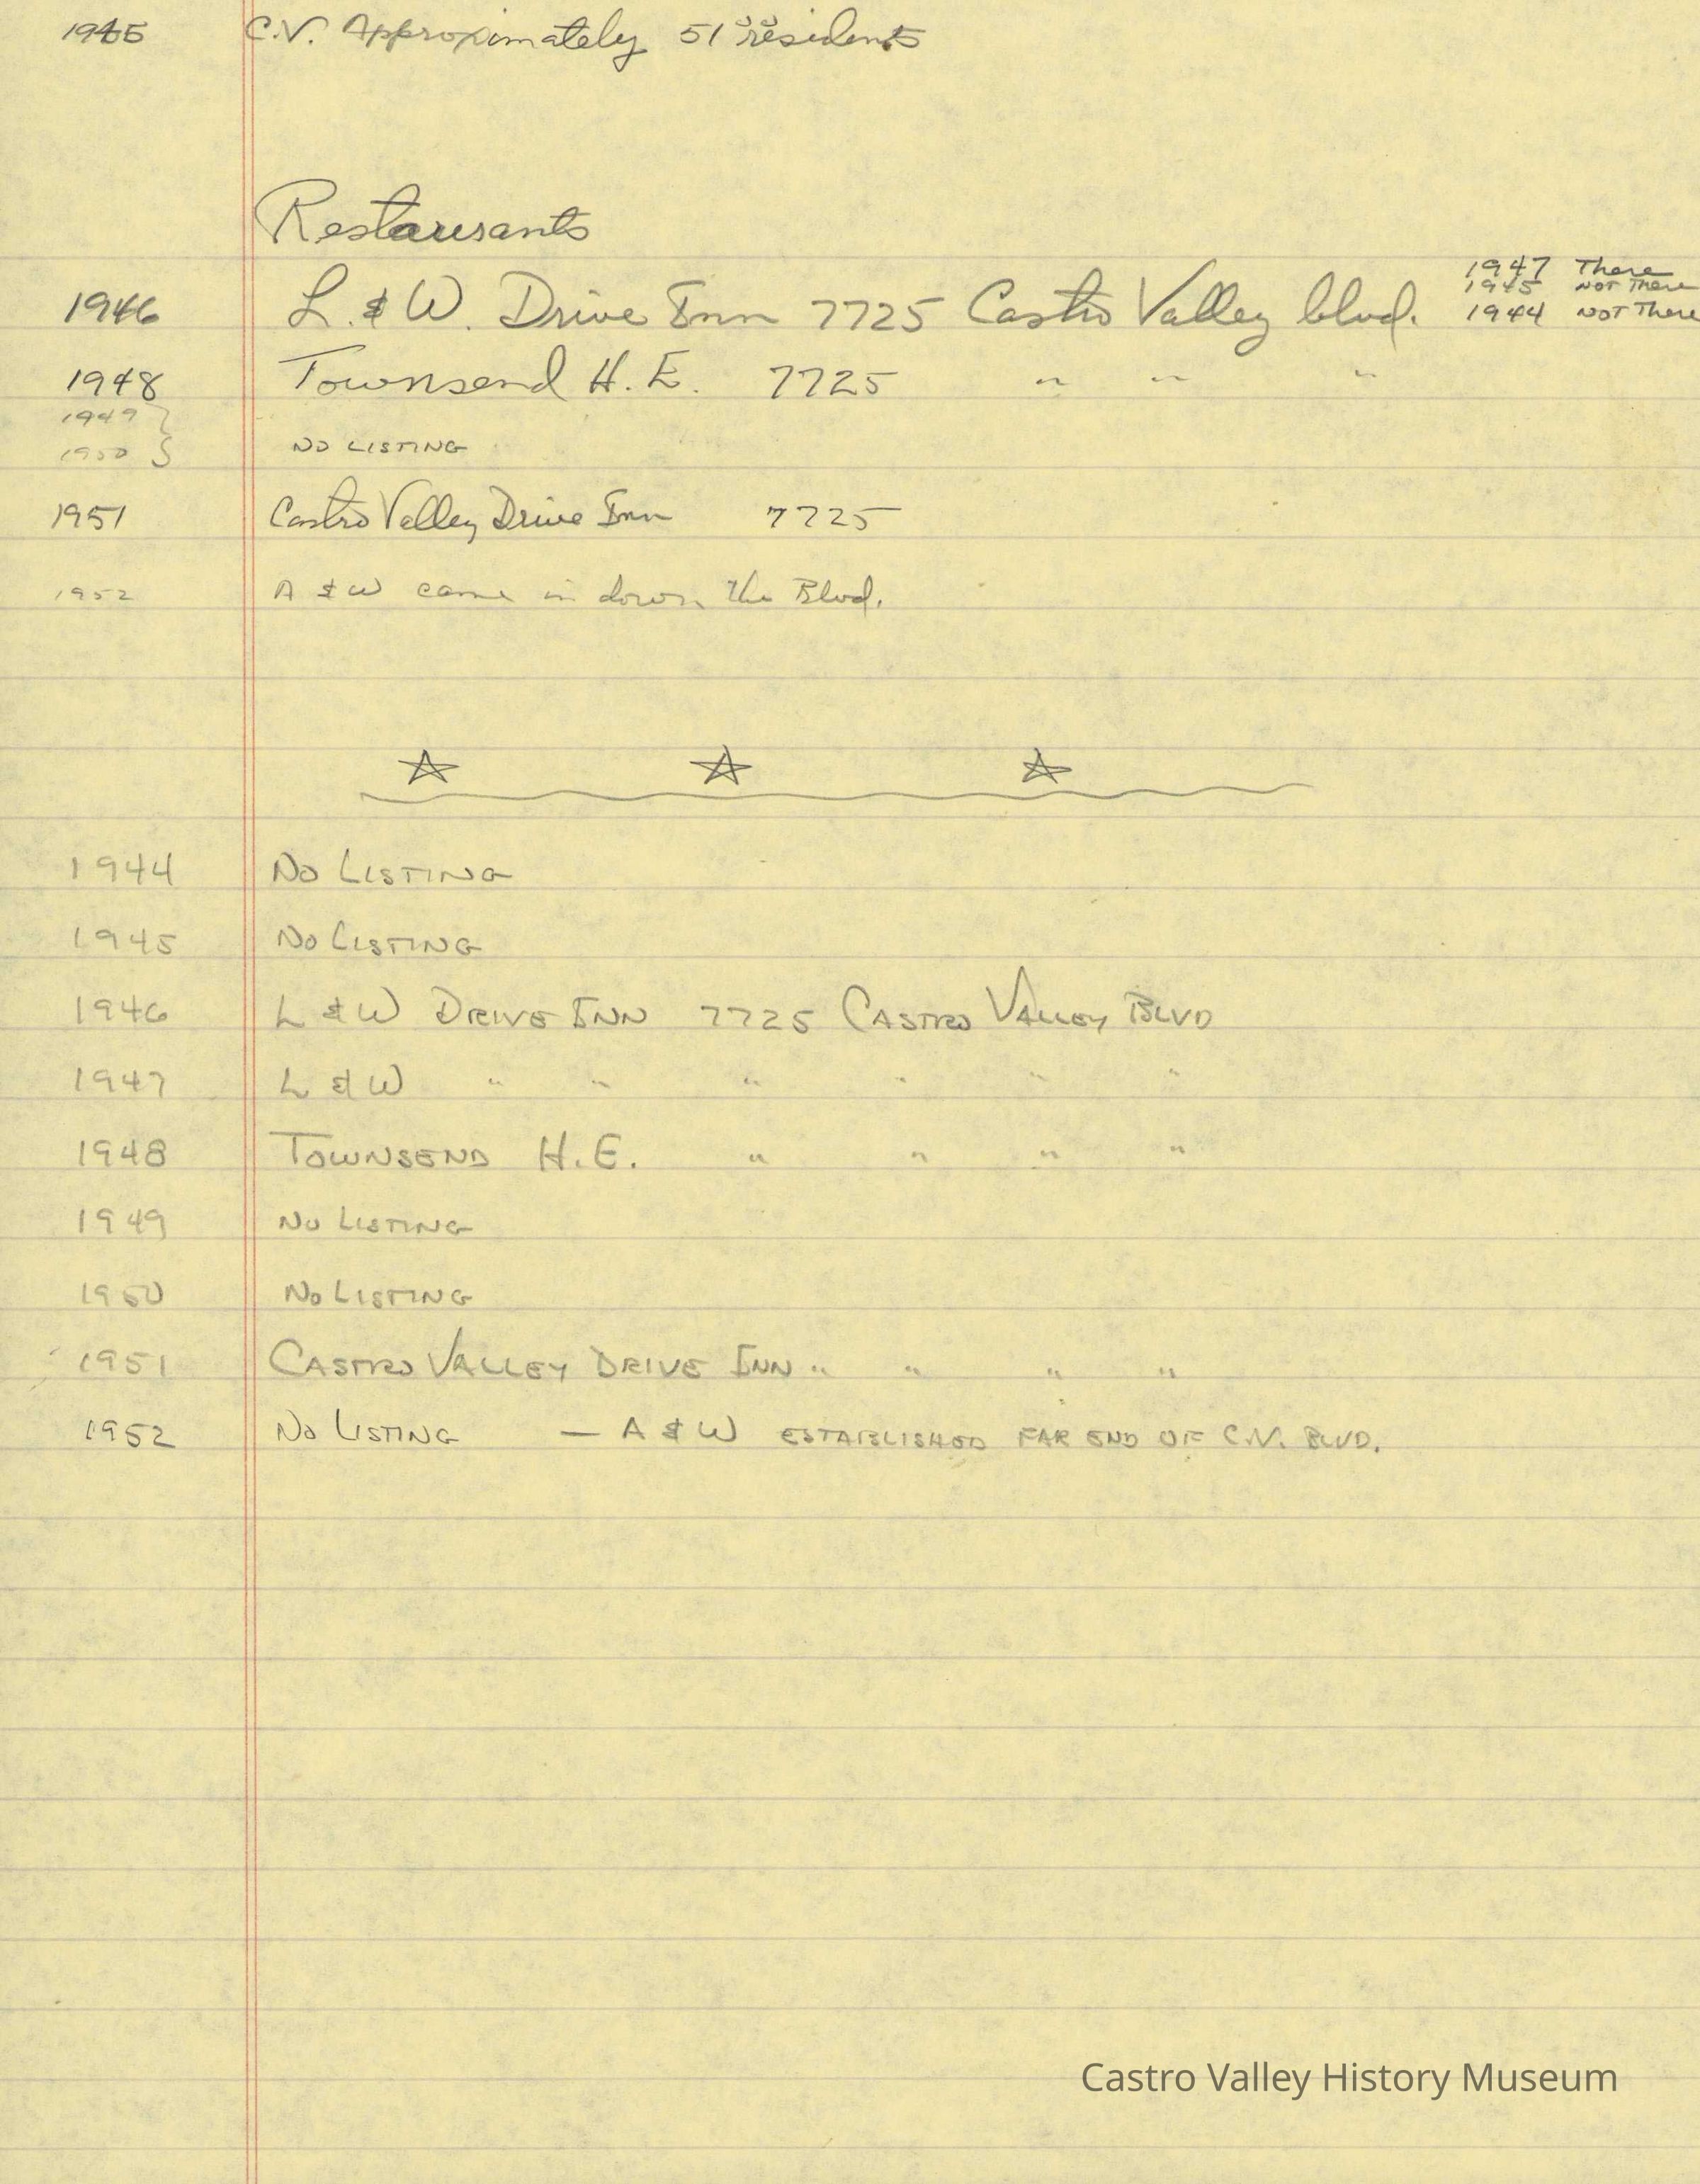 1945 C.V. Approximately 51 residents
Restaurants
1947 There
1945 NOT There
1946 L. & W. Drive Inn 7725 Castro Valley blvd. 1944 NOT There
1948 Townsend H. E. 7725 " " "
1949 }
1950 } NO LISTING
1951 Castro Valley Drive Inn 7725
1952 A & W came in down the Blvd.
1944 NO LISTING
1945 NO LISTING
1946 L & W DRIVE INN 7725 CASTRO VALLEY BLVD
1947 L & W " " " " " "
1948 TOWNSEND H.E. " " " "
1949 NO LISTING
1950 NO LISTING
1951 CASTRO VALLEY DRIVE INN " " " "
1952 NO LISTING — A & W ESTABLISHED FAR END OF C.V. BLVD.
Castro Valley History Museum